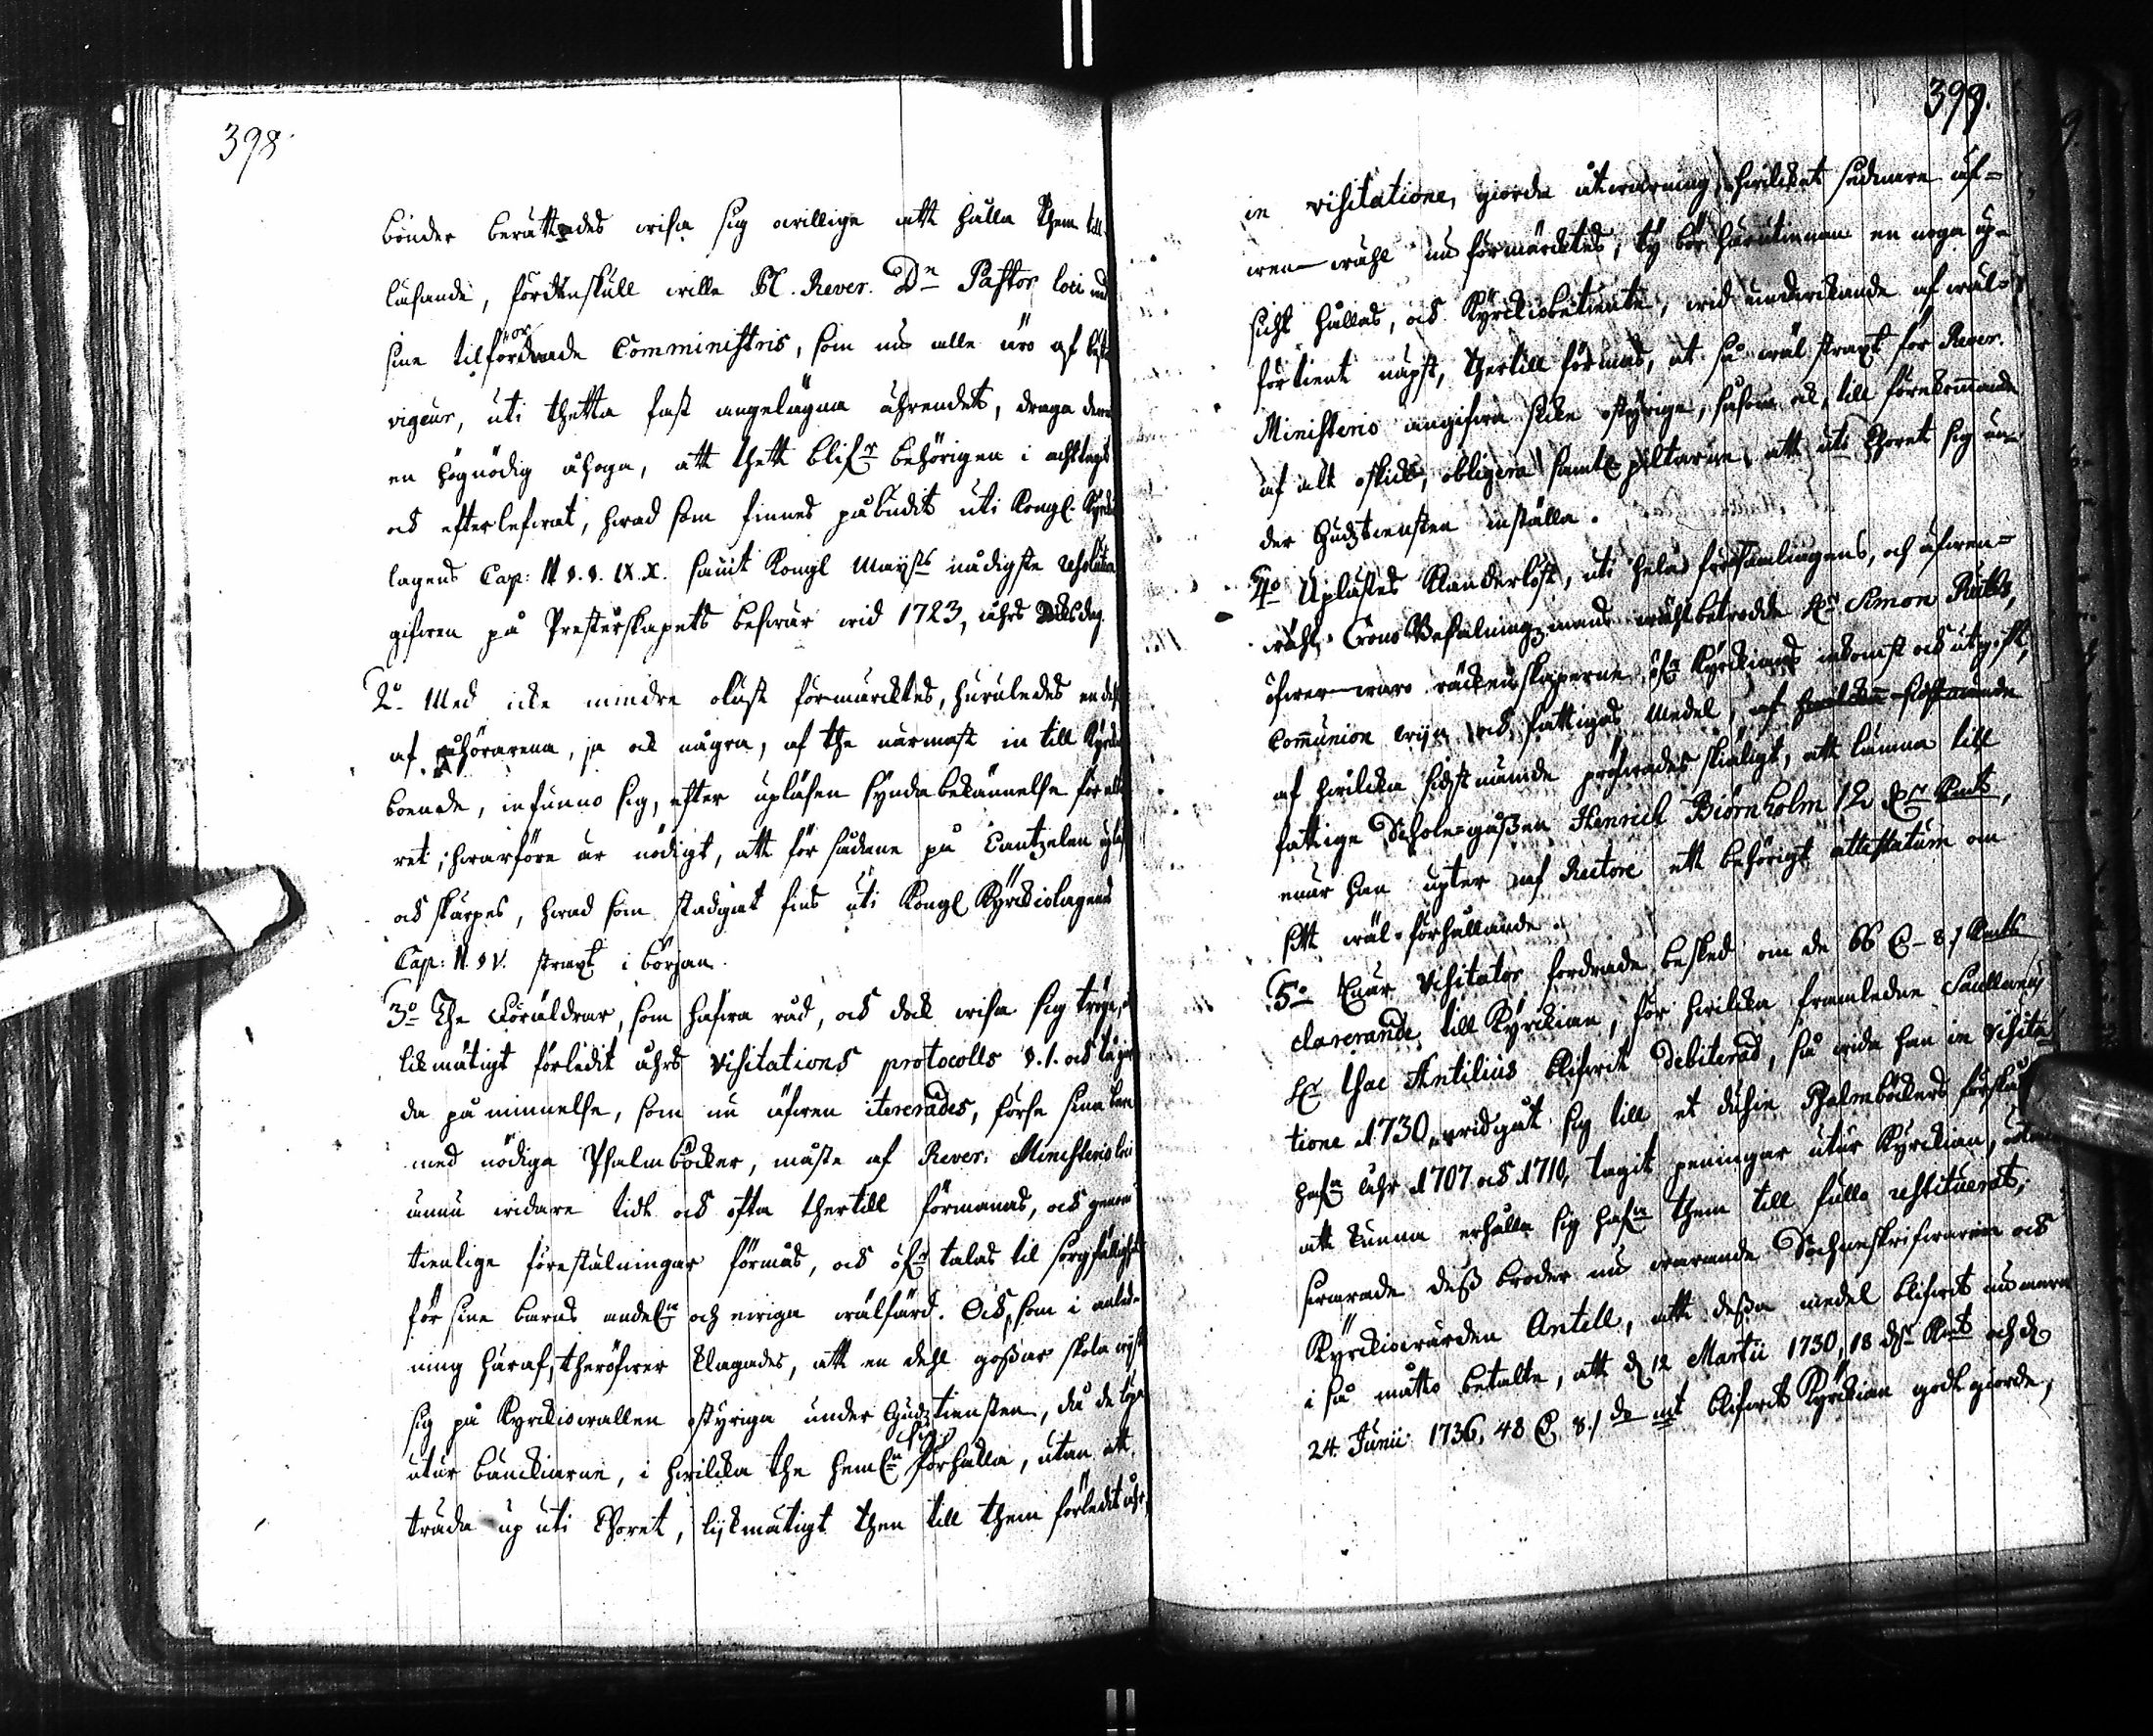 398.
bönder berättades wisa sig owillige att hålla them till
läsande, fördenskull wille Pl. Rever. Dn Pastor loci med
sine tilförordnade Comministris, som nu alle äro af bästa
vigeur, uti thetta fast angelägna ährendet, draga
en högnödig åhoga, att thett blifr behörigen i acht tagit
och efterlefwat, hwad som finnes påbudit uti Kongl. Kyrckio
lagens Cap: II §.§. IX. X. samt Kongl Mayts nådigste resolution
gifwen på Presterskapets beswär wid 1723, åhrs Riksdag.
2o Med icke mindre olust förmärcktes, huruledes en dehl
af åhörarena, ja och några, af the närmast in till Kyrckian
boende, infunno sig, efter upläsen syndabekännelse för alta
ret; hwarföre är nödigt, att för sådane på Cantzelen upläses
och skärpes, hwad som stadgat fins uti Kongl Kyrckiolagens
Cap: II. § V. straxt i början.
3o The Föräldrar, som hafwa råd, och doch wisa sig tröge,
likmätigt förledit åhrs visitations protocolls §.1. och
da påminnelse, som nu äfwen itererades, förse sina barn
med nödiga Psalmböcker, måste af Rever: Ministerio loci
ännu widare tidt och ofta thertill förmanas, och genom
tienlige föreställningar förmås, och öfr talas til sorgfällighet
för sine barns andeln och ewiga wälfärd. Och, som i anled-
ning häraf, theröfwer klagades, att en dehl gossar skola wist
sig på Kyrckiowallen ostyriga under Gudztiensten, då de löpa
utur bänckiarne, i hwilcka the hemln sig förhålla, utan att
träda up uti Choret, lijkmätigt then till them förledit åhr,
399.
in visitatione, giorda åtwarning, hwilcket sådmera äf-
wen-wähl nu förmärcktes; ty bör härutinnan en noga up-
sicht hållas, och Kyrckiobetiente, wid undwikande af wäl-
förtient näpst, thertill förmås, at så wäl straxt för Rever.
Ministerio angifwa slike ostyrige, såsom och, till förekommande
af alt oskick, obligera samtl piltarne, att uti Choret sig un-
der Gudztiensten inställa.
4o Uplästes Klanderlöst, uti hela församlingens, och äfwen-
wähl Crono Befalningzmans wählbetrodde Hr Simon Ruuths,
öfwer-waro räckenskaperne öfr Kyrckians inkomst och utgift,
Communion wijn och fattigas medel, af hwilcken sidstnämde
af hwilcka sidstnämde pröfwades skiäligt, att lämna till
fattige Schole-gåssen Henrich Biörnholm 12 dr Kmt,
enär han upter af Rectore ett behörigt attestatum om
sitt wäl-förhållande.
5o Enär Visitator fordrade besked om de 66 C - 8 / Kmt
clarerande till Kyrckian, för hwilcka framledne Cantlaren
Hr Isac Antilius blifwit debiterad, så wida han in Visita
tione 1730, widgåt sig till et dusin Psalmböckers förskåt
hafa åhr 1707 och 1710, tagit peningar utur Kyrckian, utan
att kunna erhålla sig hafa them till fullo restituerat;
swarade dess broder nu warande Sochneskrifwaren och
Kyrckiowärden Antell, att dessa medel blifwit numera
i så måtto betalte, att d 12 Martii 1730, 18 dr Kmt och d
24. Junii 1736, 48 C 8 / do mt blifwit Kyrckian godt giorde,